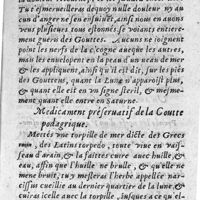 Tu t'esmerueilleras dequoy nulle douleur ny au
cun d'anger ne s'en ensuiuẽt, ainsi nous en auons
veu plusieurs tous estonnés se voyants entierement
guéris des Gouttes. Aucuns ne ioignent
point les nerfs de la cicogne auecque les autres,
mais les enuelopent en la peau d'un ueau de mer
& les appliquent, ainsi qu'il est dit, sur les piés
des Goutteus, quant la Lune n'aparoist pas,
& quant elle est en un signe steril, & mesmement
quant elle entre en Saturne.
Medicament préseruatif de la Goutte
podagrique.
Mettés une torpille de mer dicte des Grecs
des Latins torpedo, toute viue en vaisseau
d'arain, & la faittes cuire auec huille, &
eau, affin que l'huille ne brulle, & qu'elle ne
mene bruit, tu y mesleras l'herbe appellée narcissus
cueillie au dernier quartier de la lune, &
cuiras icelle auec la torpille, iusques à ce qu'el-